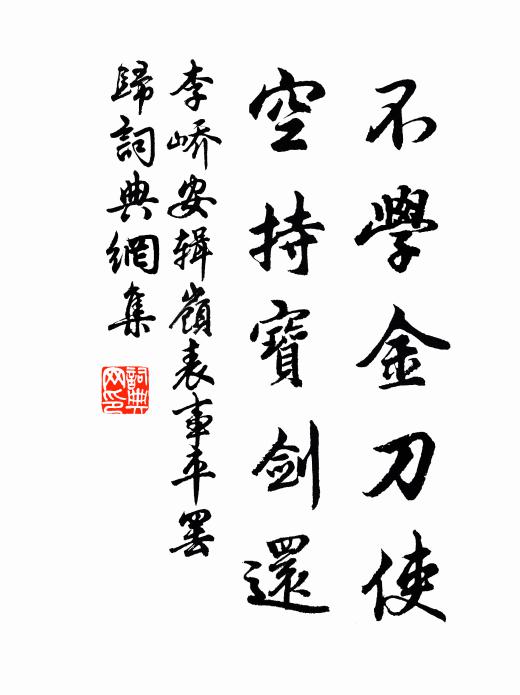 不學金刀使
空持寶劍還
李嶠安輯嶺表事平罷
歸詞典網集
詞典
网印